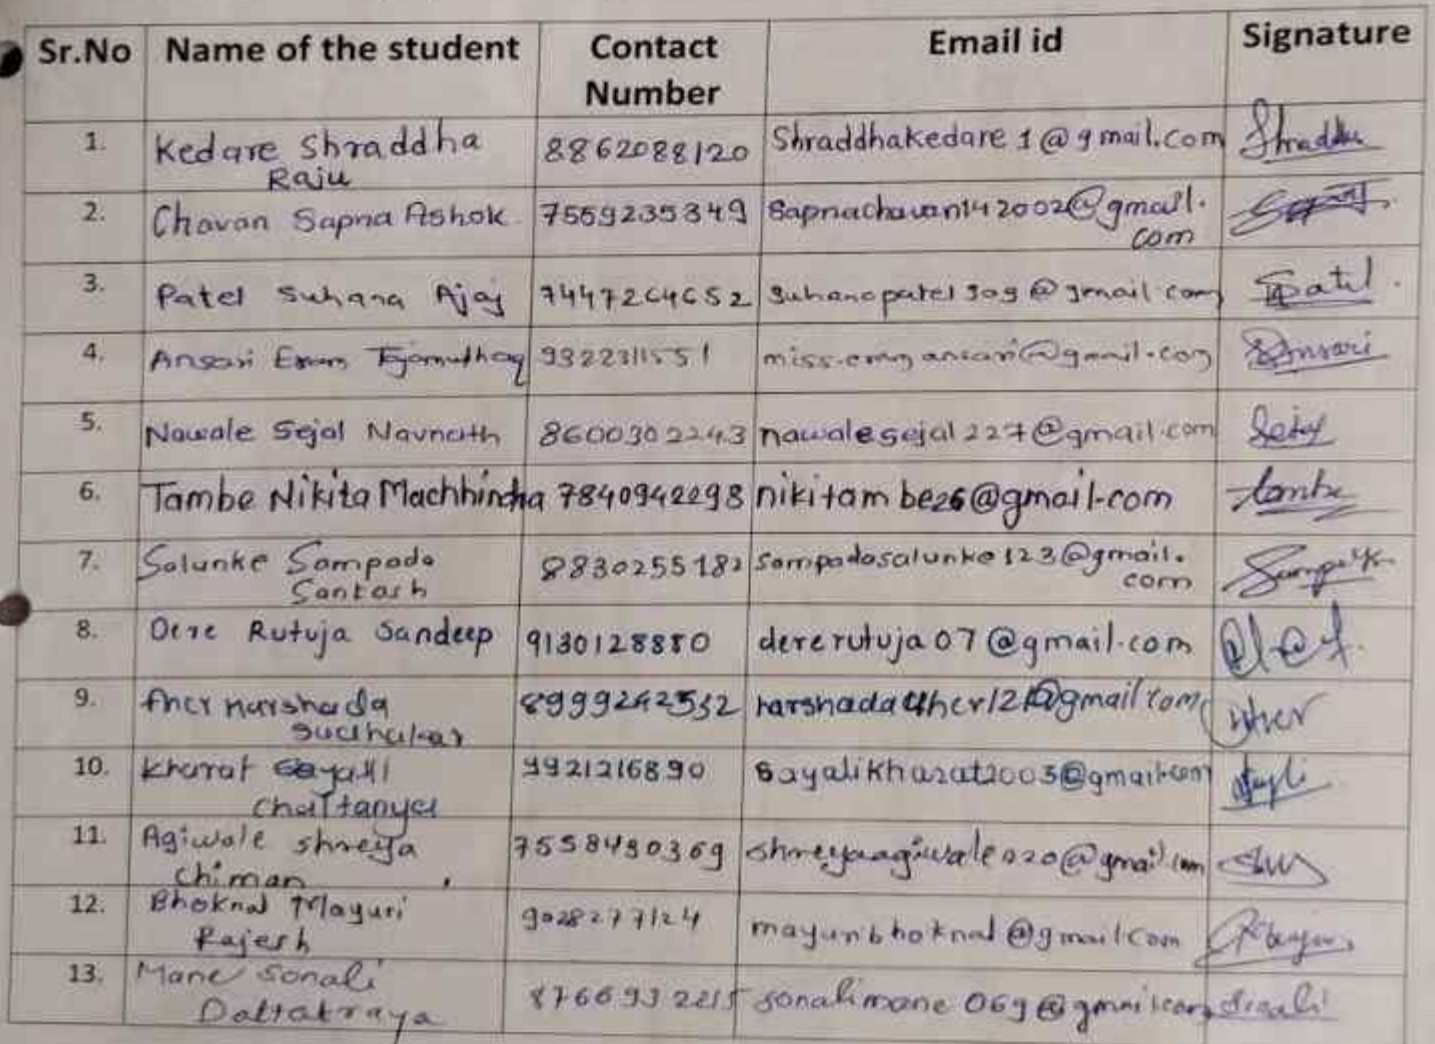 Sr.No Name of the student Contact Number Email id Signature
1. Kedare Shraddha Raju 8862088120 Shraddhakedare1@gmail.com Shraddha
2. Chavan Sapna Ashok 7559235349 Sapnachavan142002@gmail.com
3. Patel Suhana Ajaj 7447264652 suhanapatel309@gmail.com SPatel
4. Ansari 9322311551 Ansari
5. Nawale Sejal Navnath 8600302243 nawalesejal227@gmail.com Sejal
6. Tambe Nikita Machhindra 7840942298 nikitambe26@gmail.com tambe
7. Salunke Sampada Santosh 8830255182 sampadasalunke123@gmail.com
8. Dere Rutuja Sandeep 9130128880 dererutuja07@gmail.com
9. Aher Harshada Sudhakar 8999242532
10. Kharat Sayali Chaitanya 9921216890 Sayalikharat2003@gmail.com
11. Agiwale shreya Chiman 7558490369 shreyaagiwale020@gmail.com
12. Bhoknal Mayuri Rajesh 9028277124 mayuribhoknal@gmail.com
13. Mane Sonali Dattatraya 8766932215 sonalimane069@gmail.com Sonali